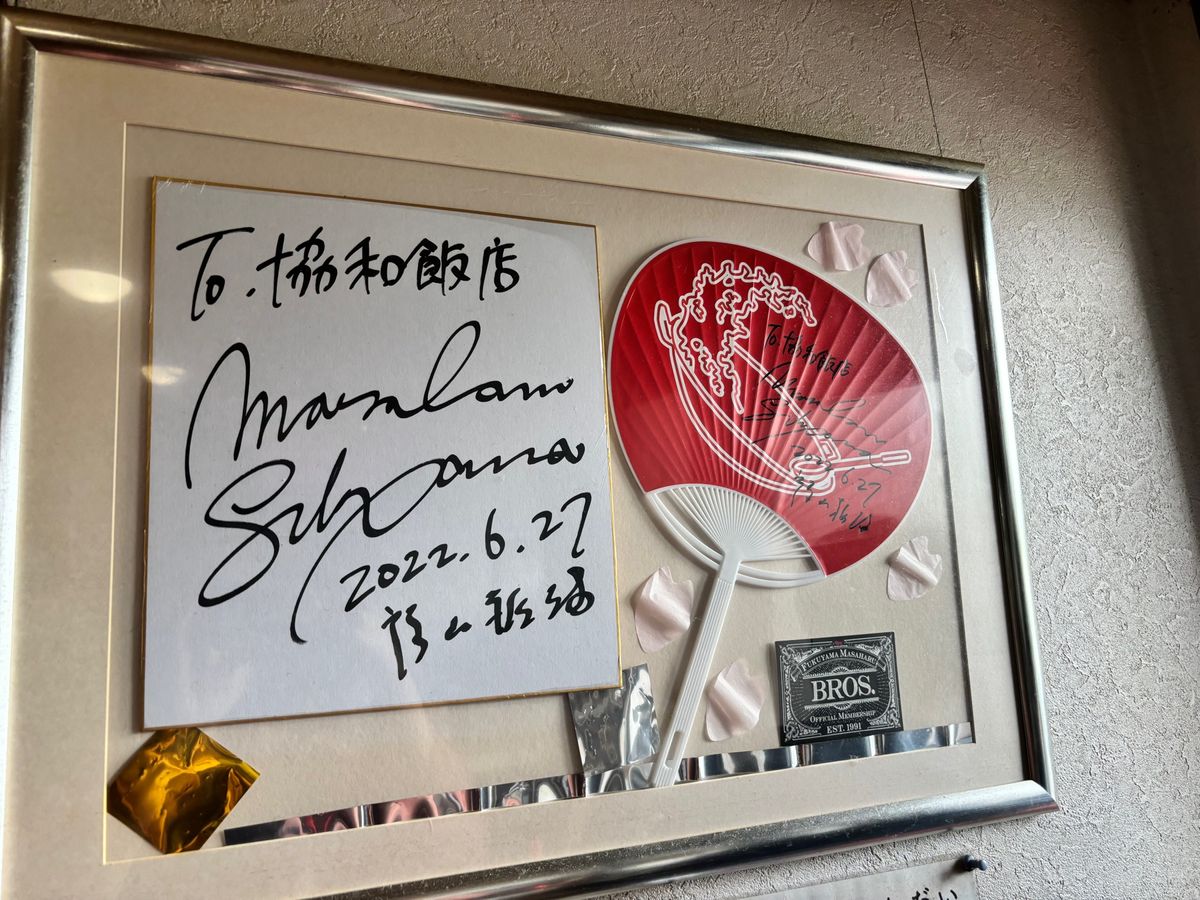 To.協和飯店
Masaharu
Fukuyama
2022.6.27
福山雅治
To.協和飯店
Masaharu
Fukuyama
2022.6.27
福山雅治
FUKUYAMA MASAHARU
BROS.
OFFICIAL MEMBERSHIP
EST. 1991
だい